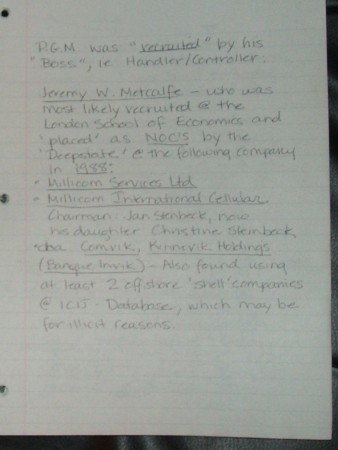 P.G.M. was "recruited" by his
"Boss", ie Handler/Controller:
Jeremy W. Metcalfe - who was
most likely recruited @ the
London School of Economics and
'placed' as NOC'S by the
'Deepstate' @ the following company
in 1988:
- Millicom Services Ltd
- Millicom International Cellular
Chairman: Jan Stenbeck, now
his daughter Christine Steinbeck
dba Comvik, Kinnevik Holdings
(Banque Invik) - Also found using
at least 2 offshore 'shell' companies
@ ICIJ - Database, which may be
for illicit reasons.